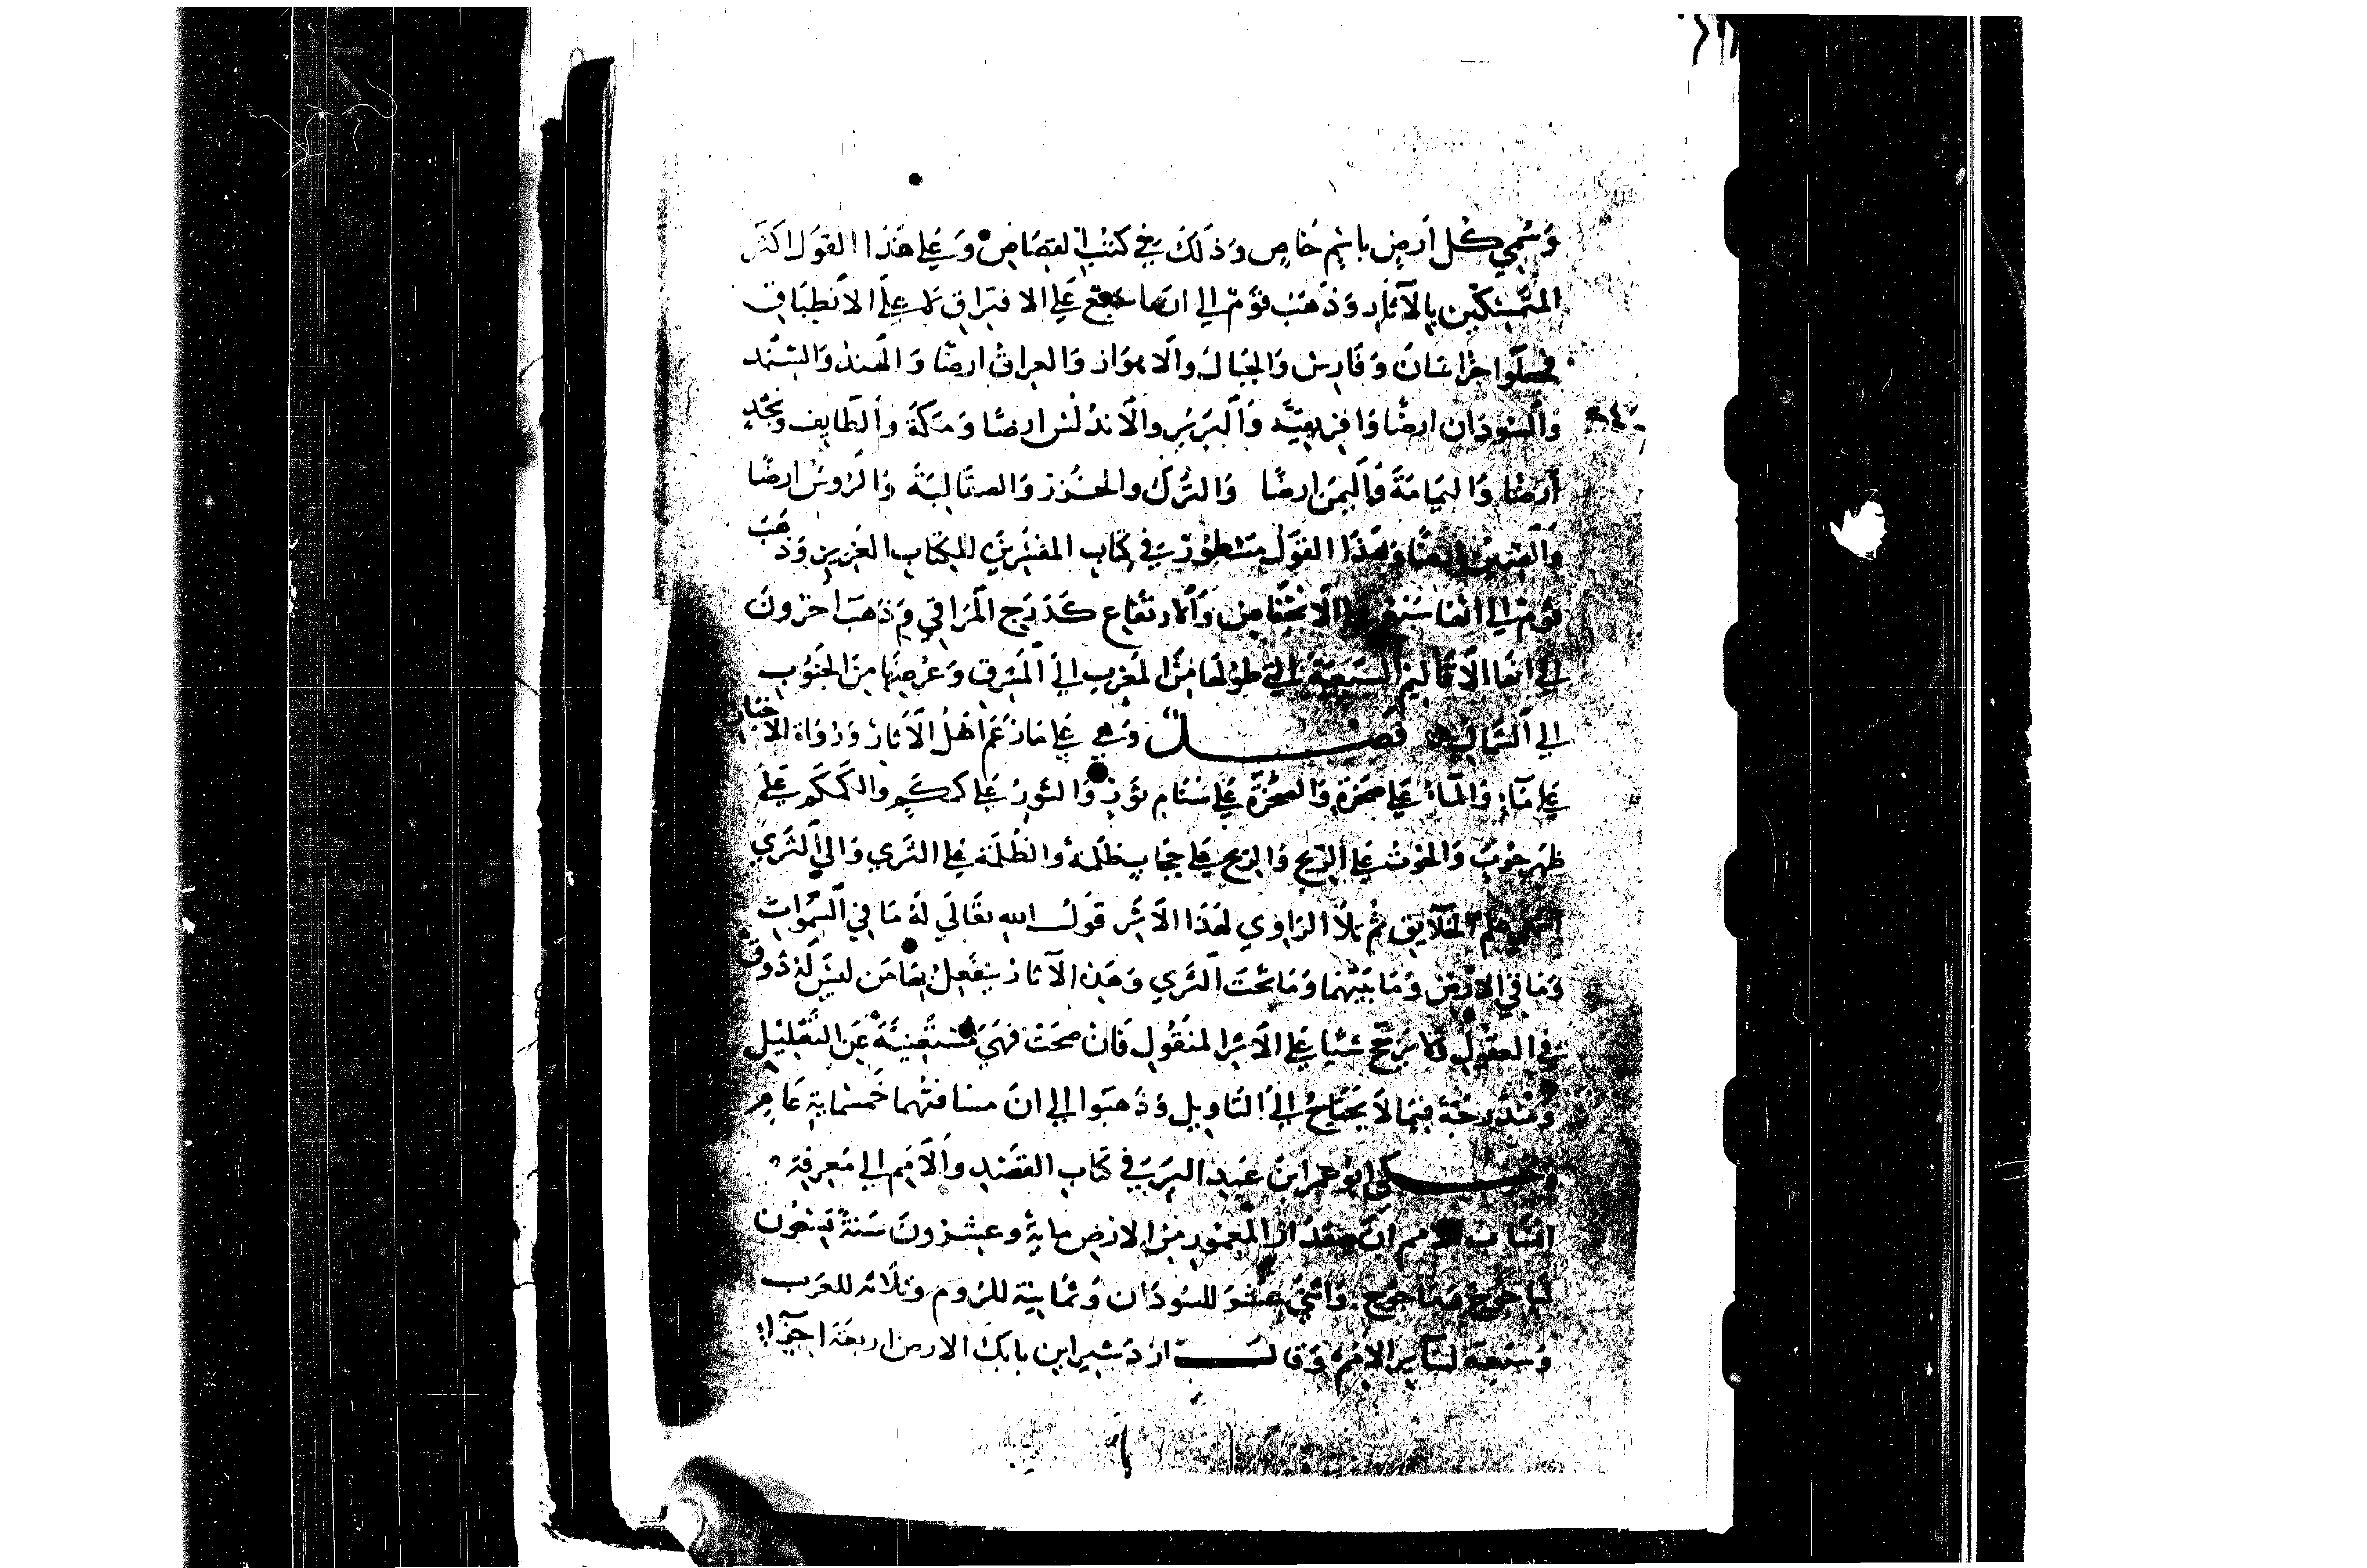 وَسُمِّي كُل اَرضٍ باسْمٍ خاصٍ وَذَلكَ في كتبْ القصَّاصْ وَعَلي هَذا القوَل اكثر
المتَمسِّكين بالآثار وَذَهَبَ قوَمٌ الي انها سبع عَلي الافتراق لا علي الانطباق
فجعلوا خراسَانَ وَفَارِس وَالجبَال وَالاهوَاز وَالعراق ارضًا وَالهند وَالسند
وَالسودان ارضًا وَافريقيَّه وَالبربر والاندلس ارضًا وَمَكة والطايف ونجد
أرضًا وَاليَمامَة وَاليمَن ارضًا وَالترك والخزر وَالصقالبَة وَالروسْ ارضًا
وَالصين ارضًا وَهَذا القوَل مسطورٌ في كتاب المفسّرين للكتاب العزيز وَذهَبَ
قوَمٌ الي انها سَبع علي الانخفاض وَالارتفاع كَدَرَج المرَاقي وَذهَبَ اخرونَ
الي انها الاقاليم السبعة التي طولها منَ المغرب الي المشرق وَعَرضهَا منَ الجنوب
الي الشمال فصــل وَهي عَلي مَا زعَمَ اهْل الآثار وَرُوَاة الاخبار
عَلي مَآءٍ وَالمآءُ عَلي صخرَة وَالصخرَة عَلي سَنام ثورٍ وَالثورُ عَلي كمكم والكمكم عَلي
ظهر حوتٍ وَالحوت عَلي الريح وَالريح عَلي حجَاب ظلمة والظلمَة عَلي الثري وَالي الثري
انتهي علم الخلايق ثم تلا الراوي لهَذا الاثَر قوَلــ الله تعَالي لهُ مَا في السَّموات
وَمَا في الارض وَمَا بَينهُما وَمَا تحتَ الثري وَهَذه الآثار ينفعل بها مَن ليسَ لهُ ذوق
في العقول وَلا يرَجّح شيا عَلي الاثر المنقول فَان صحَتْ فهيَ مستغنيَةٌ عَن التعليل
وَمندرجَة فيمَا لا يحتَاج الي التاويل وَذهَبوا الي انَ مسَافتهما خمسماية عَامٍ
وَحــكي ابوعمر ابن عَبد البر في كتاب القصَد وَالامم الي مَعرفة
انسَاب الامم انَّ مقدار المعمور منَ الارض ماية وعشرونَ سَنة تسعون
ليَاجوج وَمَاجوج وَاثني عشر للسودَان وَثمانية للروم وثلاثه للعَرب
وَسَبعة لسَاير الامم وَقالــ ازدَشير ابن بابك الارض اربعة اجزآءٍ